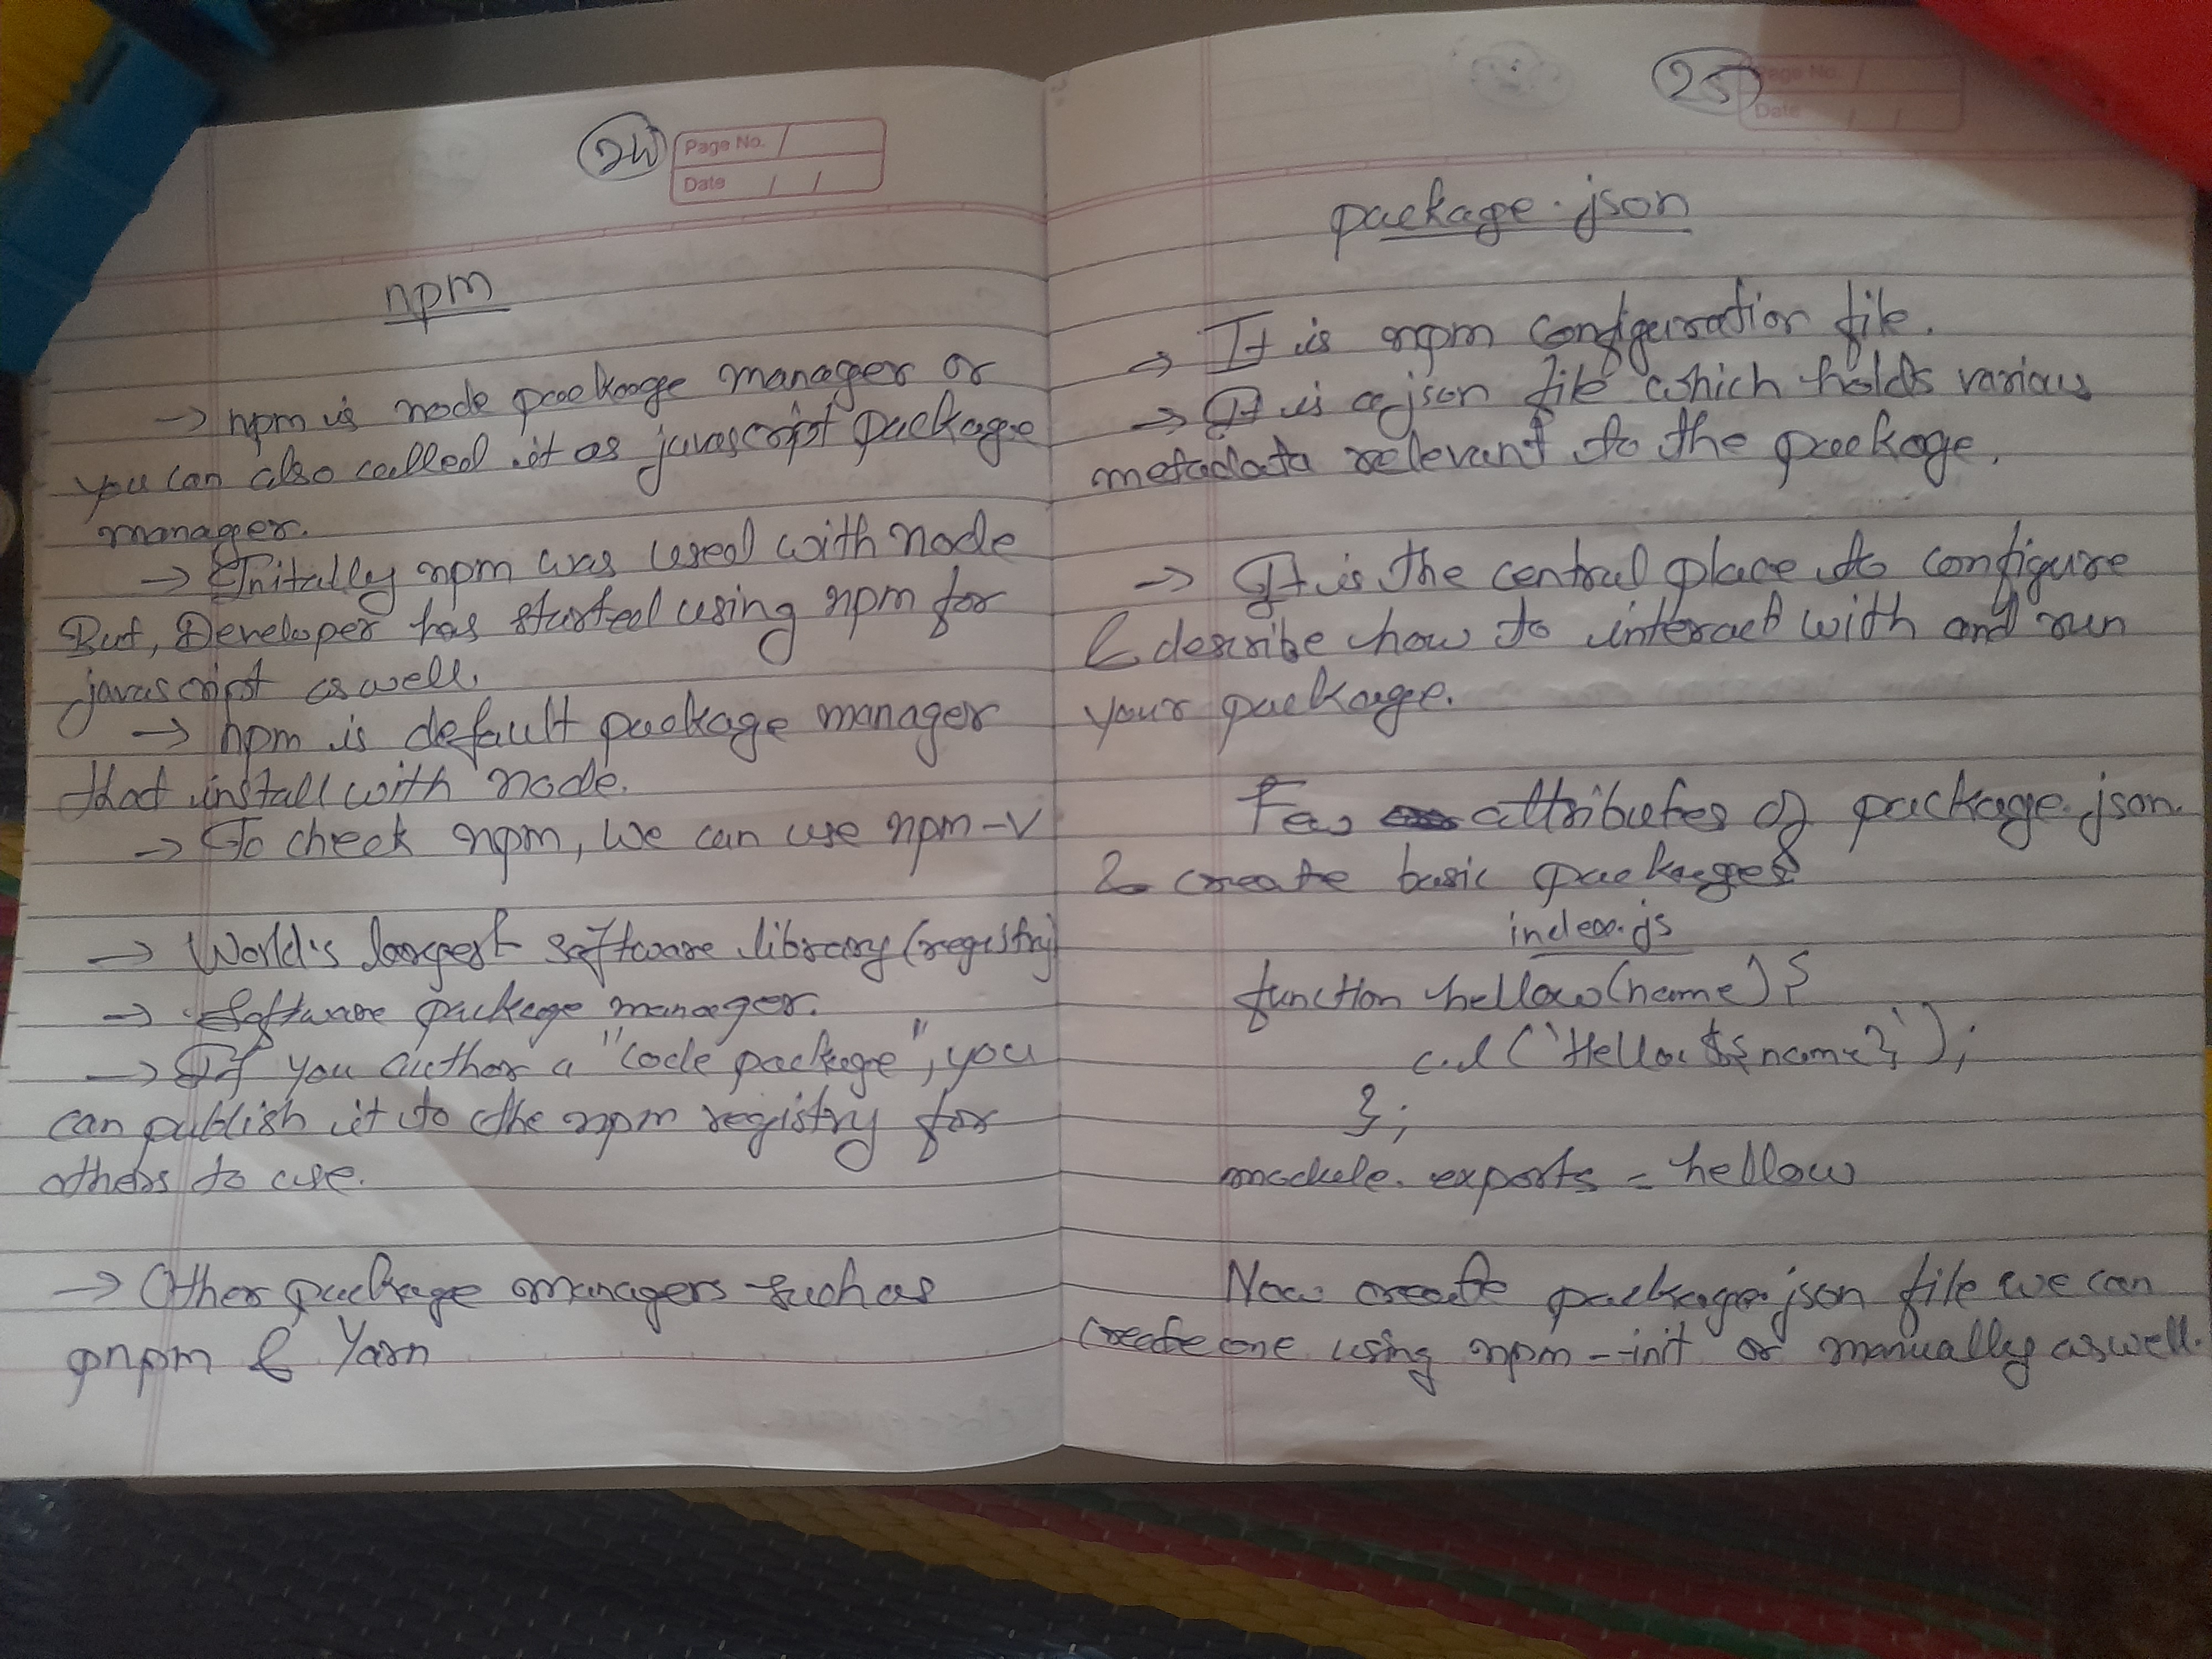 24
Page No.
Date / /
npm
→ npm is node package manager or
you can also called it as javascript package
manager.
→ Initally npm was used with node
But, Developer has started using npm for
javascript as well.
→ npm is default package manager
that install with node.
→ To check npm, we can use npm -v
→ World's largest software library (registry)
→ Software package manager.
→ If you author a "code package", you
can publish it to the npm registry for
others to use.
→ Other package managers such as
pnpm & Yarn
25
Page No.
Date / /
package.json
→ It is npm configuration file.
→ It is a json file which holds various
metadata relevant to the package.
→ It is the central place to configure
& describe how to interact with and run
your package.
Few attributes of package.json.
& create basic packages
index.js
function hellow(name) {
c.l (`Hello ${name}`);
};
module.exports = hellow
Now create package.json file we can
create one using npm -init or manually as well.